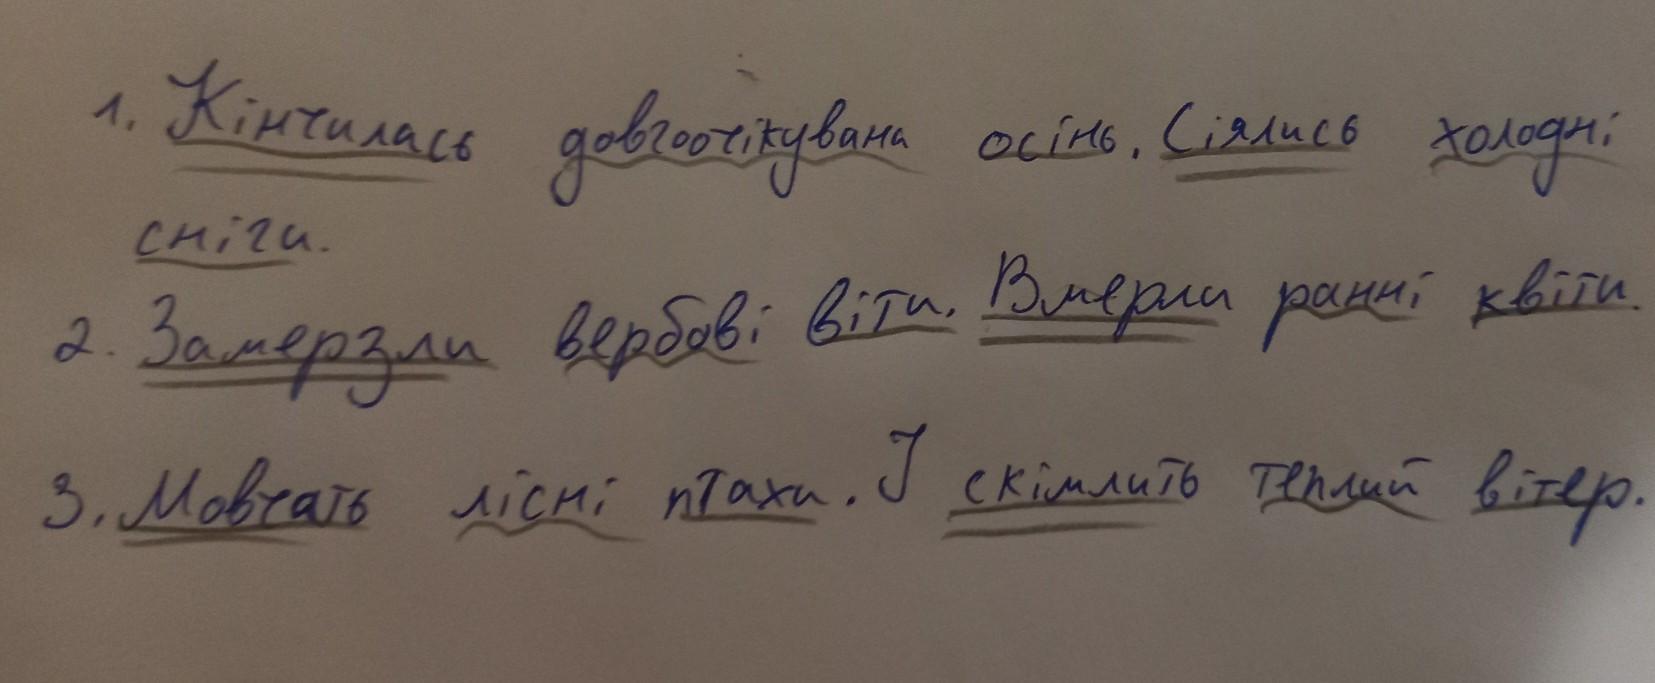 1. Кінчилась довгоочікувана осінь. Сіялись холодні
сніги.
2. Замерзли вербові віти. Вмерли ранні квіти.
3. Мовчать лісні птахи. І скімлить теплий вітер.